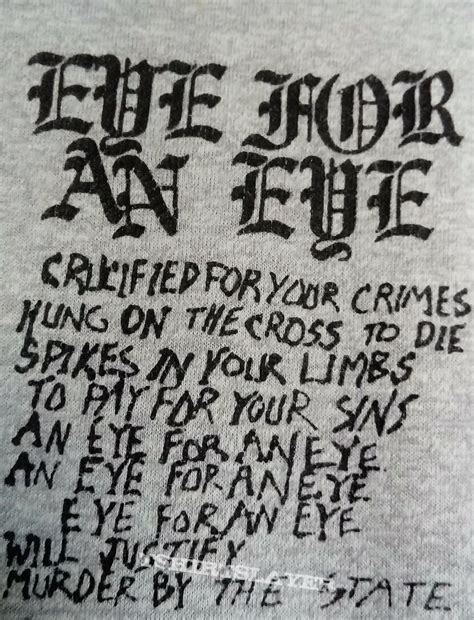 EYE FOR
AN EYE
CRUCIFIED FOR YOUR CRIMES
HUNG ON THE CROSS TO DIE
SPIKES IN YOUR LIMBS
TO PAY FOR YOUR SINS
AN EYE FOR AN EYE
AN EYE FOR AN EYE
EYE FOR AN EYE
WILL JUSTIFY
TSHIRTSLAYER
MURDER BY THE STATE